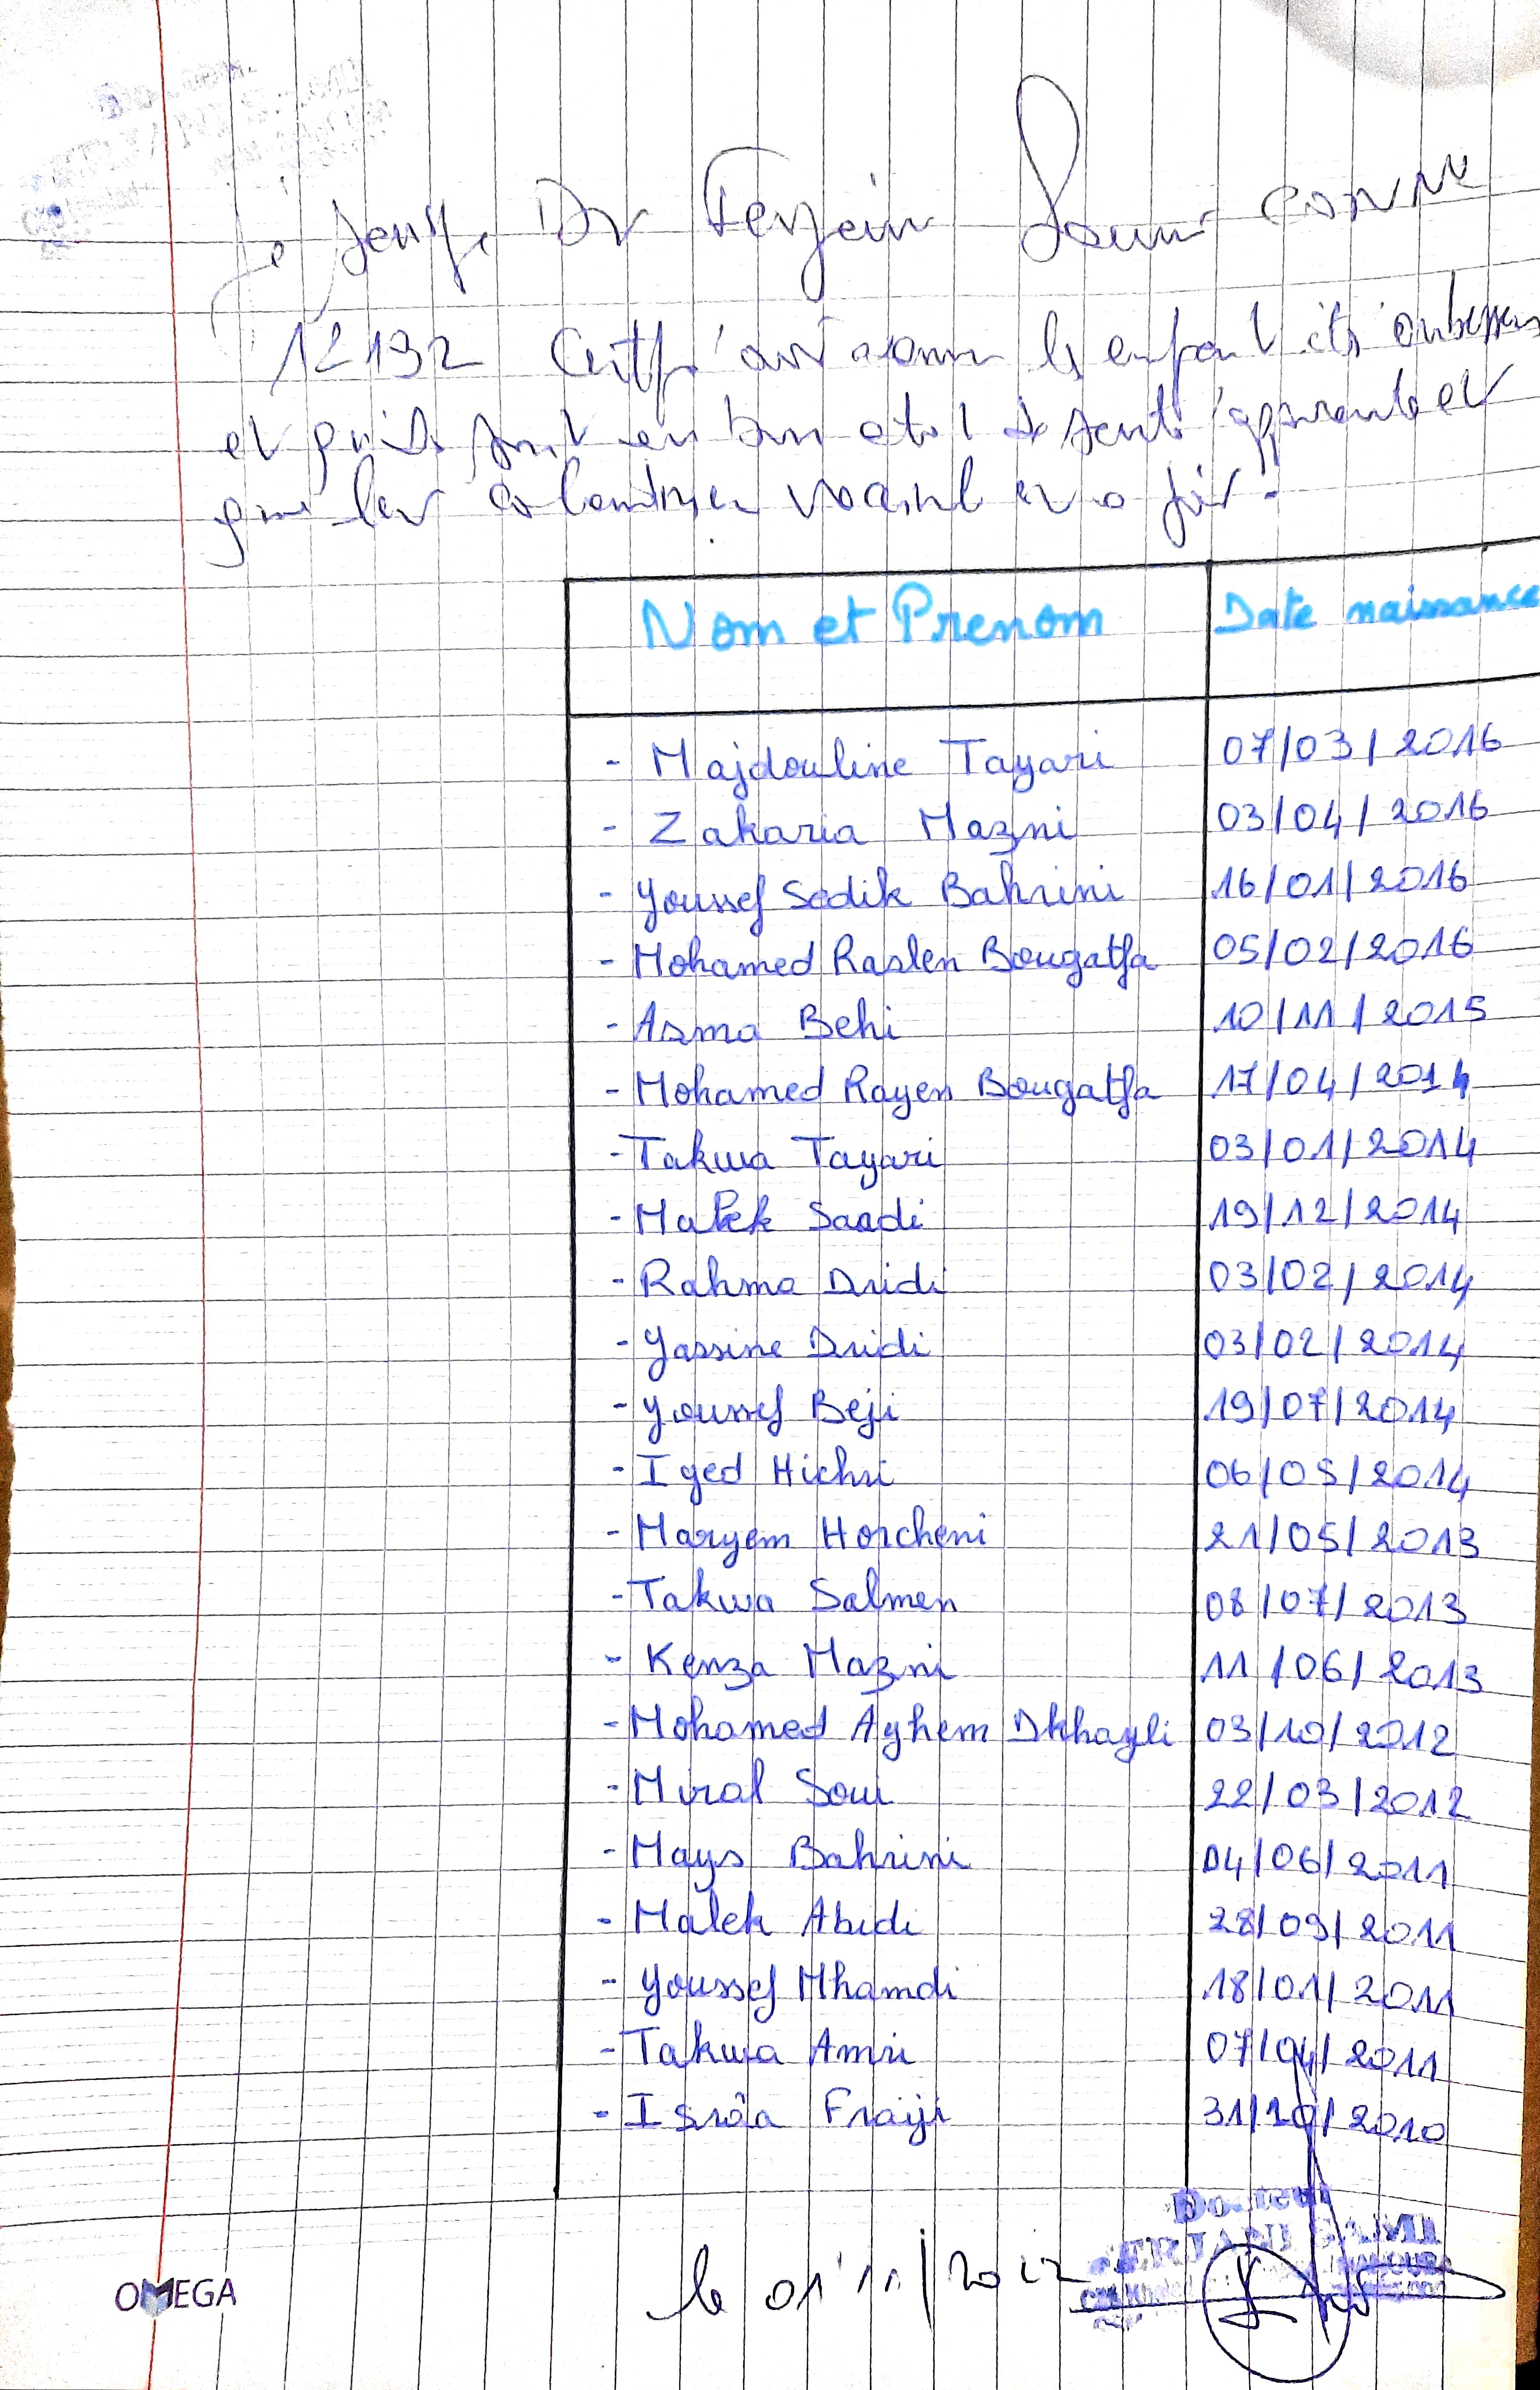 Je soussigné Dr Ferjani Sami
12192 Certifie avoir les enfants ci
et qu'ils sont en bon etat de santé apparente et
que leur vaccinal
Nom et Prenom Date naissance
- Majdouline Tayari 07/03/2016
- Zakaria Mazni 03/04/2016
- Youssef Sadik Bahrini 16/01/2016
- Mohamed Raslen Bougatfa 05/02/2016
- Asma Behi 10/11/2015
- Mohamed Rayen Bougatfa 17/04/2014
- Takwa Tayari 03/01/2014
- Malek Saadi 19/12/2014
- Rahma Dridi 03/02/2014
- Yassine Dridi 03/02/2014
- Youssef Beji 19/07/2014
- Iyed Hichri 06/05/2014
- Maryem Horcheni 21/05/2013
- Takwa Salmen 08/07/2013
- Kenza Mazni 11/06/2013
- Mohamed Ayhem Dkhayli 03/10/2012
- Miral Soui 22/03/2012
- Mays Bahrini 04/06/2011
- Malek Abidi 28/09/2011
- Youssef Mhamdi 18/01/2011
- Takwa Amri 07/04/2011
- Isrâa Fraiji 31/10/2010
Docteur
FERJANI SAMI
le 01/11/2022
OMEGA